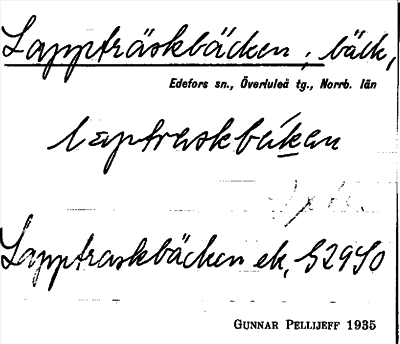 Lappträskbäcken, bäck,
Edefors sn., Överluleå tg., Norrb. län
laptraskbäkan
Lapptraskbäcken ek, S29S0
GUNNAR PELLIJEFF 1935